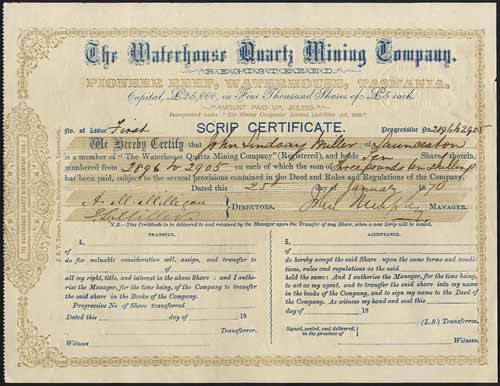 The Waterhouse Quartz Mining Company.
REGISTERED.
PIONEER REEF, WATERHOUSE, TASMANIA.
Capital, £25,000, in Five Thousand Shares of £5 each.
AMOUNT PAID UP,
Incorporated under "The Mining Companies Limited Liability Act,
No. of Issue First
SCRIP CERTIFICATE.
Progressive No. 2896 to 2905
We Hereby Certify that John Lindsay of Launceston
is a member of "The Waterhouse Quartz Mining Company" (Registered), and holds Ten Shares therein,
numbered from 2896 to 2905 on each of which the sum of Three pounds ten shillings
has been paid, subject to the several provisions contained in the Deed and Rules and Regulations of the Company.
Dated this 25th day of January 1870
DIRECTORS.
John Murphy MANAGER.
N.B.—This Certificate to be delivered to and retained by the Manager upon the Transfer of any Share, when a new Scrip will be issued.
TRANSFER.
£
do for valuable consideration sell, assign, and transfer to
of
all my right, title, and interest in the above Share; and I authorise
the Manager, for the time being, of the Company, to transfer
the said share in the Books of the Company.
Progressive No of Share transferred
Dated this day of 18
Transferrer.
Witness
ACCEPTANCE.
£,
of
do hereby accept the said Share upon the same terms and conditions, rules and regulations as the said
held the same: And I authorise the Manager, for the time being,
to act as my agent, and to transfer the said share into my name
in the books of the Company, and to sign my name to the Deed of
the Company. As witness my hand and seal this
day of 18
(L.S.) Transferree.
Signed, sealed, and delivered,
in the presence of
Witness